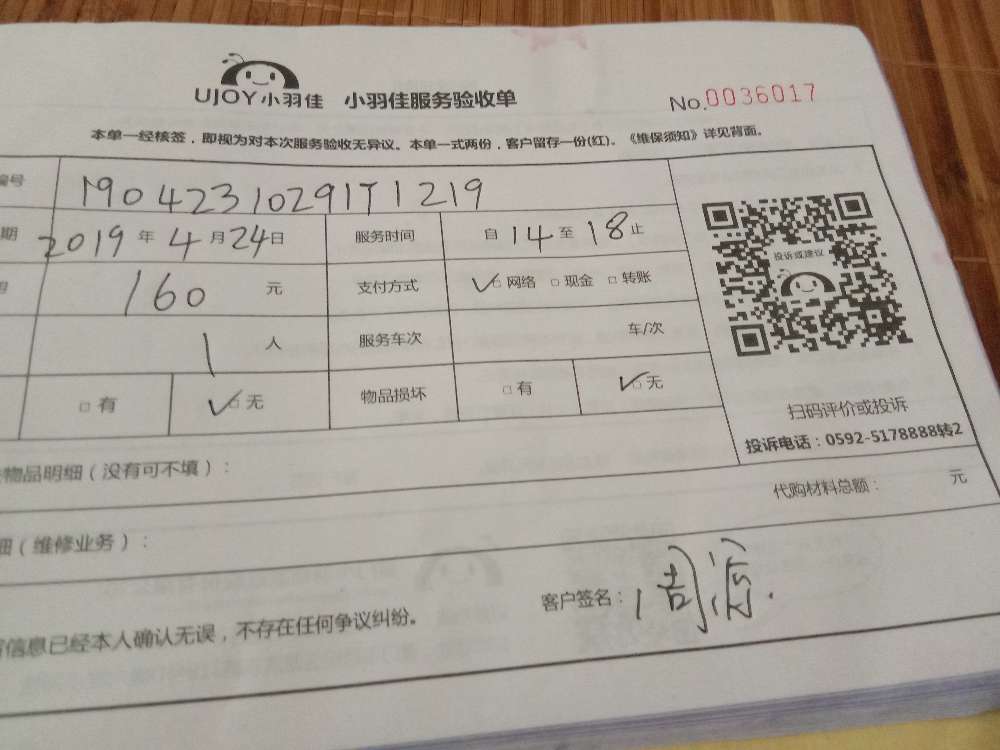 UJOY小羽佳 小羽佳服务验收单 No.0036017
本单一经核签，即视为对本次服务验收无异议。本单一式两份，客户留存一份(红)。《维保须知》详见背面。
编号 190423102917T1219
期 2019年4月24日 服务时间 自14至18止
160 元 支付方式 ✓□网络 □现金 □转账
1 人 服务车次 车/次
□有 ✓□无 物品损坏 □有 ✓□无
投诉或建议
扫码评价或投诉
投诉电话：0592-5178888转2
物品明细（没有可不填）：
代购材料总额： 元
细（维修业务）：
信息已经本人确认无误，不存在任何争议纠纷。 客户签名：